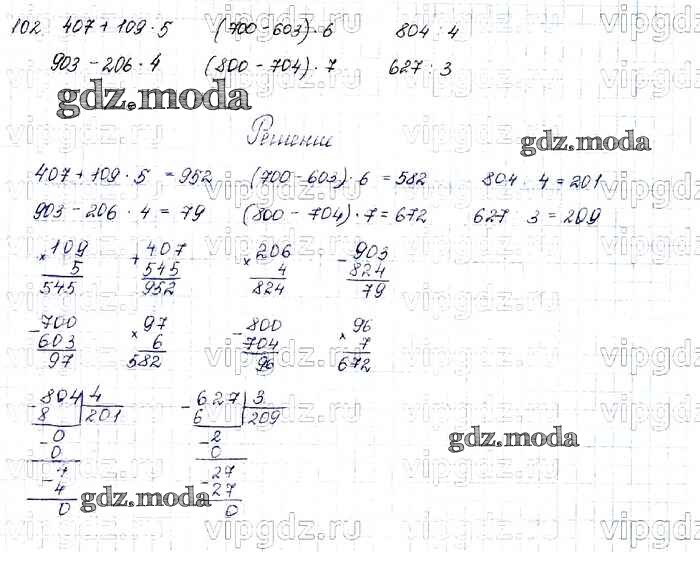 102. 407 + 109 · 5 (700 - 603) · 6 804 : 4
903 - 206 · 4 (800 - 704) · 7 627 : 3
gdz.moda
Решение
gdz.moda
407 + 109 · 5 = 952 (700 - 603) · 6 = 582 804 : 4 = 201
903 - 206 · 4 = 79 (800 - 704) · 7 = 672 627 3 = 209
× 109 + 407 × 206 - 903
5 545 4 824
545 952 824 79
- 700 × 97 - 800 × 96
603 6 704 7
97 582 96 672
- 804 4 - 627 3
8 201 6 209
- 0 - 2
0 0
gdz.moda
- 4 - 27
4 27
0 0
gdz.moda
vipgdz.ru